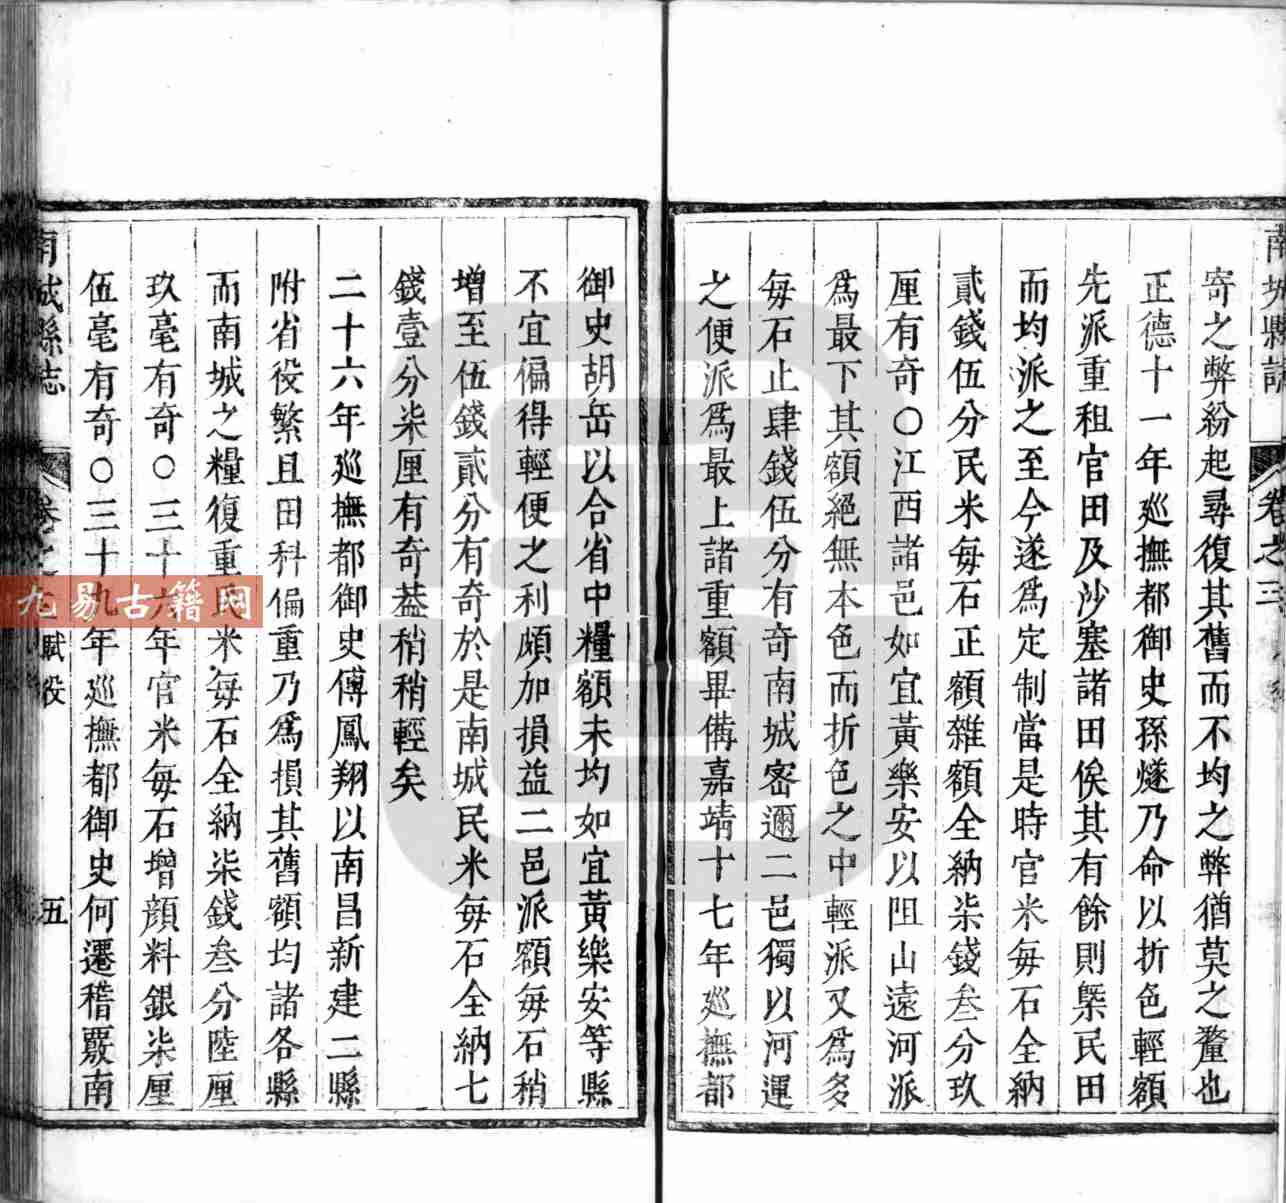 南城縣誌
卷之三
寄之弊紛起尋復其舊而不均之弊猶莫之釐也
正德十一年廵撫都御史孫燧乃命以折色輕額
先派重租官田及沙塞諸田俟其有餘則槩民田
而均派之至今遂爲定制當是時官米每石全納
貳錢伍分民米每石正額雜額全納柒錢叁分玖
厘有奇○江西諸邑如宜黃樂安以阻山遠河派
爲最下其額絕無本色而折色之中輕派又爲多
每石止肆錢伍分有奇南城密邇二邑獨以河運
之便派爲最上諸重額畢備嘉靖十七年廵撫都
御史胡岳以合省中糧額未均如宜黃樂安等縣
不宜偏得輕便之利頗加損益二邑派額每石稍
增至伍錢貳分有奇於是南城民米每石全納七
錢壹分柒厘有奇葢稍稍輕矣
二十六年廵撫都御史傅鳳翔以南昌新建二縣
附省役繁且田科偏重乃爲損其舊額均諸各縣
而南城之糧復重民米每石全納柒錢叁分陸厘
玖毫有奇○三十六年官米每石增顔料銀柒厘
伍毫有奇○三十九年廵撫都御史何遷稽覈南
南城縣志
卷之三
賦役
五
九易古籍网